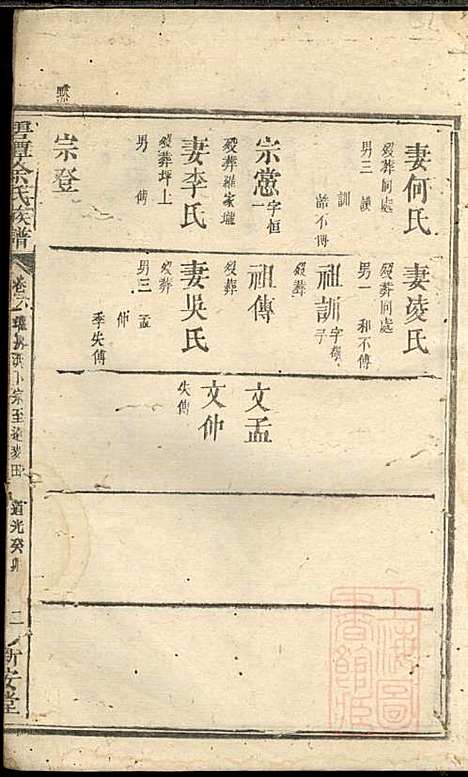 妻何氏
歿葬何處
男三 諌
訓
諦不傳
宗憲 字恒一
歿葬羅家壠
妻李氏
歿葬坪上
男 傳
宗登
妻凌氏
歿葬何處
男一 和不傳
祖訓
歿葬
祖傳
歿葬
妻吳氏
歿葬
男三 孟
仲
季失傳
文孟
文仲
失傳
余氏族譜
道光癸卯
二
新安堂
上海圖書館藏